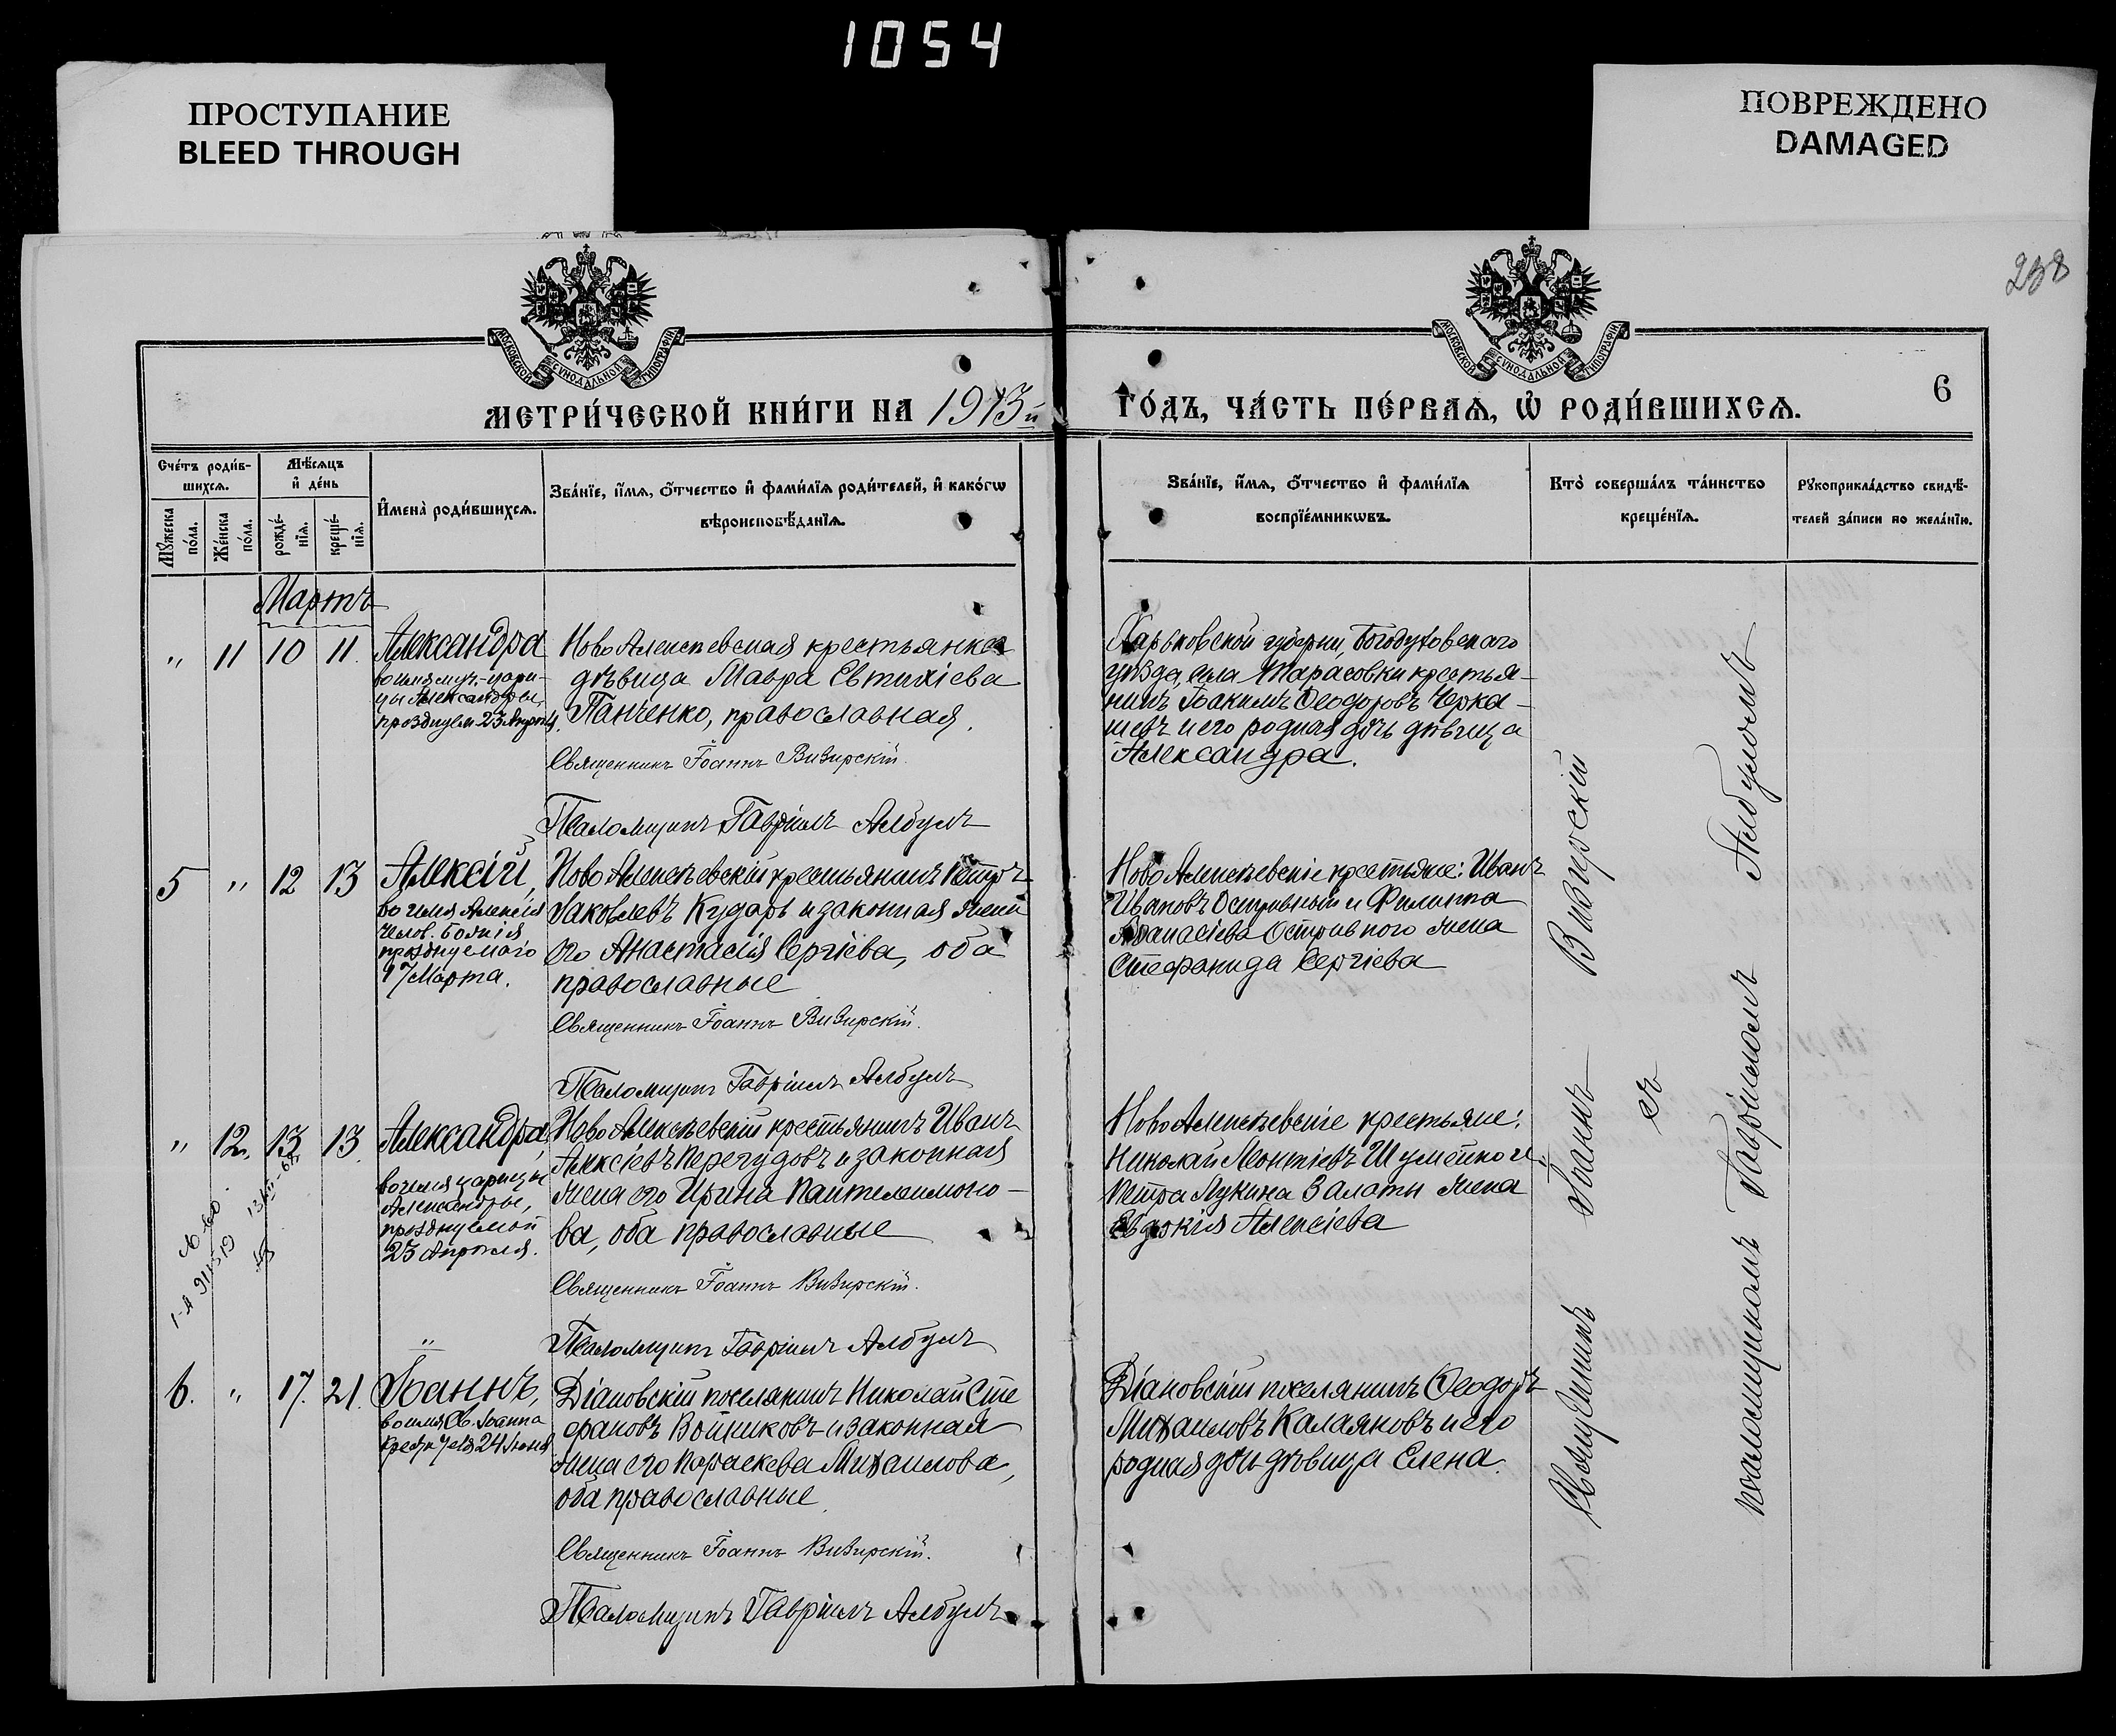 1054
ПРОСТУПАНИЕ
BLEED THROUGH
ПОВРЕЖДЕНО
DAMAGED
МОСКОВСКОЙ СУНОДАЛЬНОЙ ТИПОГРАФІИ
МОСКОВСКОЙ СУНОДАЛЬНОЙ ТИПОГРАФІИ
238
6
МЕТРИ́ЧЕСКОЙ КНИ́ГИ НА 1913й
ГО́ДЪ, ЧА́СТЬ ПЕ́РВАѦ, Ѡ҆ РОДИ́ВШИХСѦ.
Сче́тъ роди́в-
шихсѧ.
Мѣ́сѧцъ
и҆ де́нь
Мꙋ́жеска
по́ла.
Же́нска
по́ла.
рожде́-
нїѧ.
креще́-
нїѧ.
И҆мена̀ роди́вшихсѧ.
Зва́нїе, и҆́мѧ, ѻ҆́тчество и҆ фами́лїѧ роди́телей, и҆ како́гѡ
вѣроисповѣ́данїѧ.
Зва́нїе, и҆́мѧ, ѻ҆́тчество и҆ фами́лїѧ
воспрїе́мникѡвъ.
Кто̀ соверша́лъ та́инство
креще́нїѧ.
Рꙋкоприкла́дство свидѣ́-
телей за́писи по жела́нїю.
Мартъ
" 11 10 11. Александра
во имя муч.-цари-
цы Александры,
празднуем. 23 Апрѣля.
НовоАлексѣевская крестьянка
дѣвица Мавра Евтихіева
Панченко, православная.
Священникъ Іоаннъ Визирскій.
Псаломщикъ Гавріилъ Албулъ
Харьковской губерніи, Богодуховскаго
уѣзда, села Тарасовки крестья-
нинъ Іоакимъ Ѳеодоровъ Черка-
шевъ и его родная дочь дѣвица
Александра.
5 " 12 13 Алексій,
во имя Алексія
челов. Божія
празднуемаго
17 Марта.
НовоАлексѣевскій крестьянинъ Петръ
Іаковлевъ Кударь и законная жена
его Анастасія Сергіева, оба
православные
Священникъ Іоаннъ Визирскій.
Псаломщикъ Гавріилъ Албулъ
НовоАлексѣевскіе крестьяне: Иванъ
Ивановъ Островный и Филиппа
Аѳанасіева Островного жена
Стефанида Сергіева
" 12. 13 13. Александра,
во имя царицы
Александры,
празднуемой
23 Апрѣля.
НовоАлексѣевскій крестьянинъ Иванъ
Алексіевъ Перегудовъ и законная
жена его Ирина Пантелеимоно-
ва, оба православные
Священникъ Іоаннъ Визирскій.
Псаломщикъ Гавріилъ Албулъ
НовоАлексѣевскіе крестьяне:
Николай Леонтіевъ Шумейко и
Петра Лукина Залаты жена
Евдокія Алексіева
6. " 17. 21. Іоаннъ,
во имя Св. Іоанна
Крест. 24 Іюня
Діановскій поселянинъ Николай Сте
фановъ Войниковъ и законная
жена его Параскева Михаилова,
оба православные.
Священникъ Іоаннъ Визирскій.
Псаломщикъ Гавріилъ Албулъ
Діановскій поселянинъ Ѳеодоръ
Михаиловъ Калаяновъ и его
родная дочь дѣвица Елена.
Священникъ Іоаннъ Визирскій
съ
псаломщикомъ Гавріиломъ Албуломъ